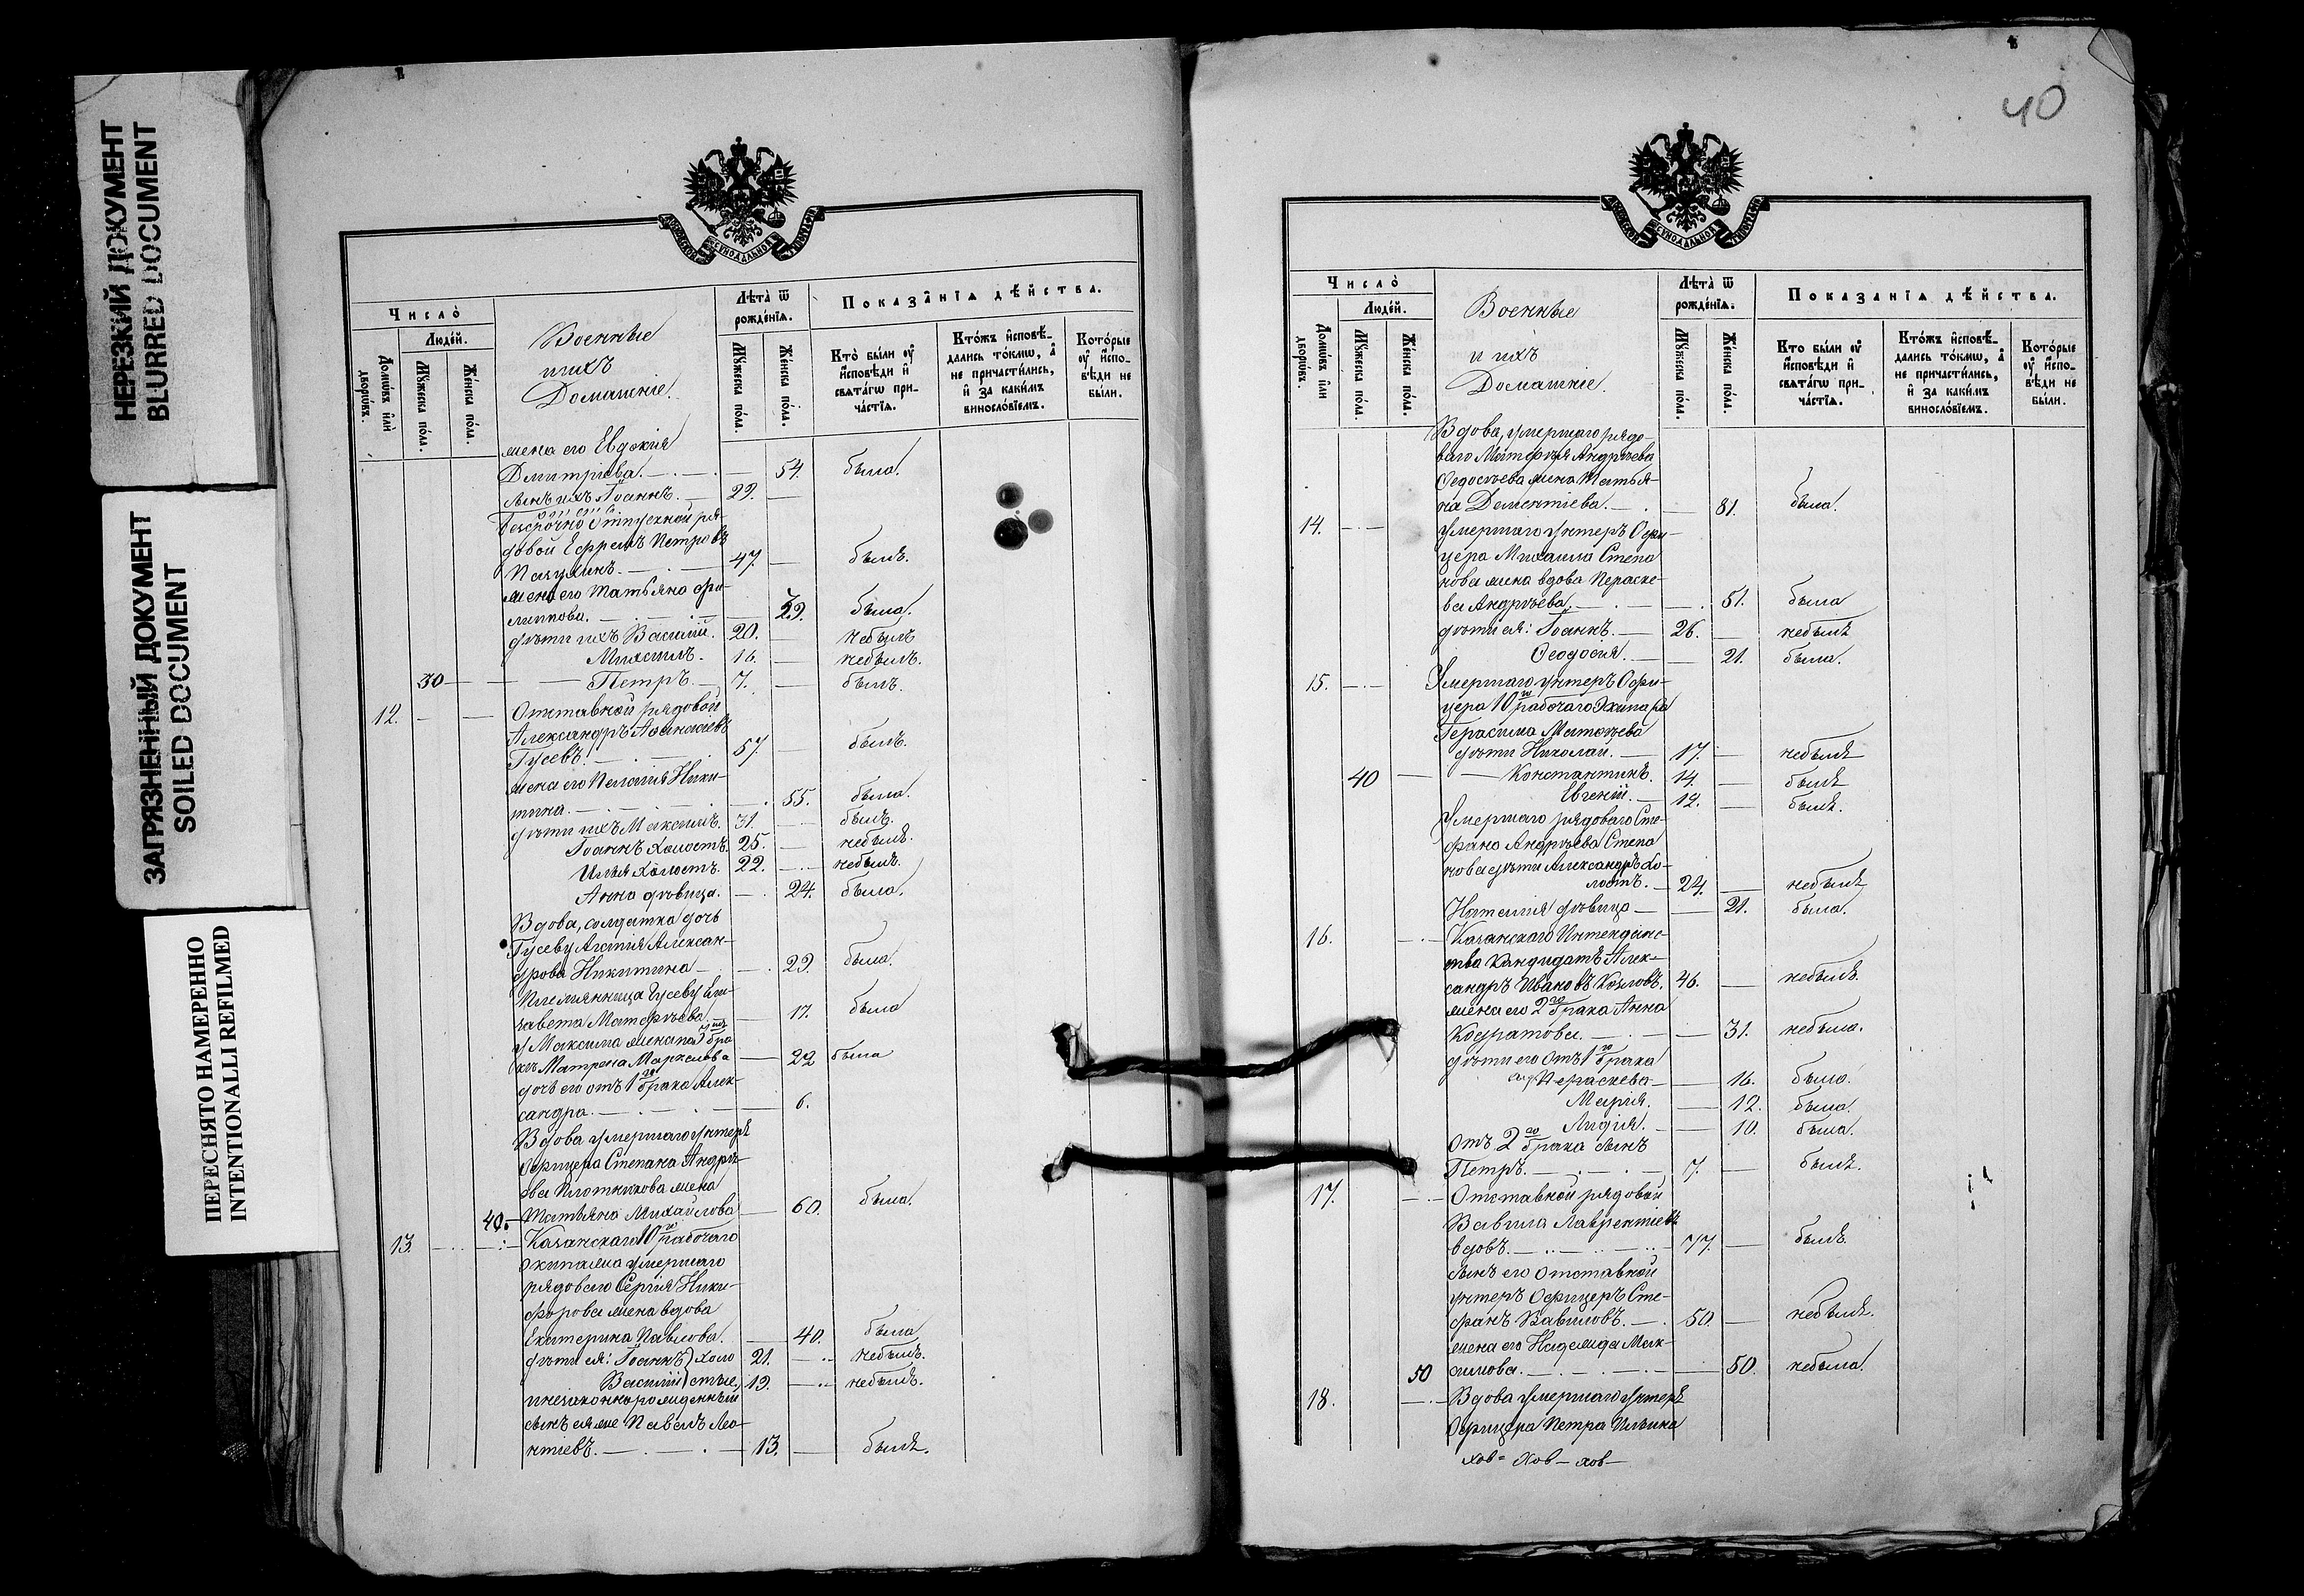 НЕРЕЗКИЙ ДОКУМЕНТ
BLURRED DOCUMENT
ЗАГРЯЗНЕННЫЙ ДОКУМЕНТ
SOILED DOCUMENT
ПЕРЕСНЯТО НАМЕРЕННО
INTENTIONALLI REFILMED
Число̀
Людéй.
Домѡ́въ и҆лѝ дворѡ́въ.
Мꙋ́жеска по́ла.
Же́нска по́ла.
Военные
и ихъ
Домашніе.
Лѣта̀ ѿ рожде́нїѧ.
Мꙋ́жеска по́ла.
Же́нска по́ла.
Показа̑нїѧ дѣ́йства.
Кто̀ бы́ли ᲂу҆
и҆сповѣ́ди и҆
свѧта́гѡ при-
ча́стїѧ.
Кто́жъ и҆сповѣ́-
дались то́кмѡ, а҆
не причасти́лись,
и҆ за каки́мъ
винословїемъ.
Кото́рые
ᲂу҆ и҆спо-
вѣ́ди не
бы́ли.
жена его Евдокія
Дмитріева. 54. была.
сынъ ихъ Іоаннъ. 29.
Безсрочно отпускной ря-
довой Ефремъ Петровъ
47. былъ.
жена его Татьяна Фи-
липпова. 39. была.
дѣти ихъ Василій. 20. небылъ
Михаилъ. 16. небылъ.
30 Петръ. 7. былъ.
12. Отставной рядовой
Александръ Аѳанасіевъ
Гусевъ. 57. былъ.
жена его Пелагія Ники-
тина. 55. была.
дѣти ихъ Максимъ. 31. былъ.
Іоаннъ холостъ. 25. небылъ.
Илья холостъ. 22. небылъ.
Анна дѣвица. 24. была.
Вдова, солдатка дочь
Гусеву Агафія Алексан-
дрова Никитина 29. была.
Племянница Гусеву Ели-
завета Матѳѣева 17. была
у Максима жена бра
Матрена Маркелова 22 была
дочь его отъ 1го брака Алек-
сандра. 6.
Вдова умершаго унтеръ
Офицера Степана Андрѣ-
ева Плотникова жена
40. Татьяна Михайлова 60. была.
13. Казанскаго 10го рабочаго
экипажа умершаго
рядоваго Сергія Ники-
форова жена вдова
Екатерина Павлова. 40. была
дѣти ея: Іоаннъ холо 21. небылъ.
Василій стые, 19. небылъ.
и незаконнорожденный
сынъ ея же Павелъ Лео-
нтіевъ. 13. былъ.
40
Число̀
Людéй.
Домѡ́въ и҆лѝ дворѡ́въ.
Мꙋ́жеска по́ла.
Же́нска по́ла.
Военные
и ихъ
Домашніе.
Лѣта̀ ѿ рожде́нїѧ.
Мꙋ́жеска по́ла.
Же́нска по́ла.
Показа̑нїѧ дѣ́йства.
Кто̀ бы́ли ᲂу҆
и҆сповѣ́ди и҆
свѧта́гѡ при-
ча́стїѧ.
Кто́жъ и҆сповѣ́-
дались то́кмѡ, а҆
не причасти́лись,
и҆ за каки́мъ
винословїемъ.
Кото́рые
ᲂу҆ и҆спо-
вѣ́ди не
бы́ли.
Вдова, умершаго рядо-
ваго Матѳея Андрѣева
Ѳедосѣева жена Татья-
на Дементіева. 81. была.
14. умершаго унтеръ Офи-
цера Михаила Степа
нова жена вдова Параске-
ва Андрѣева. 51. была
дѣти ея: Іоаннъ. 26. небылъ
Ѳеодосія. 21. была.
15. Умершаго унтеръ Офи-
цера 10го рабочаго Экипажа
Герасима Матѳѣева
дѣти Николай. 17. небылъ
40 Константинъ. 14. былъ
Евгеній. 12. былъ.
Умершаго рядоваго Сте-
фана Андрѣева Степа
нова дѣти Александръ хо-
лостъ. 24. небылъ
Наталія дѣвица 21. была.
16. Казанскаго Интендан-
тва Кандидатъ Алек-
сандръ Ивановъ Козловъ. 46. небылъ.
жена его 2го брака Анна
Кодратова. 31. небыла.
дѣти его отъ 1го брака
Параскева 16. была.
Марія. 12. была.
Лидія. 10. была.
отъ 2го брака сынъ
Петръ. 7. былъ.
17. Отставной рядовой
Вавила Лаврентіевъ
вдовъ. 77. былъ.
сынъ его отставной
унтеръ Офицеръ Сте-
фанъ Вавиловъ. 50. небылъ.
жена его Надежда Мак-
50 симова. 50. небыла.
18. Вдова умершаго унтеръ
Офицера Петра Ильина